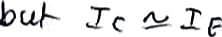 but I_C ≃ I_E